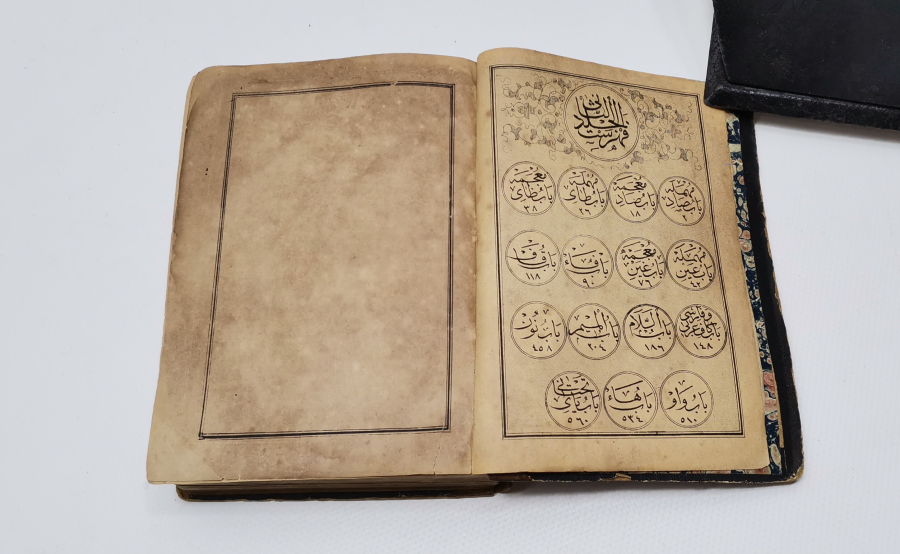 فهرست الجلد الثانى
باب صاد مهملة ٢
باب ضاد معجمة ١٨
باب طاى مهملة ٢٦
باب ظاى معجمة ٣٨
باب عين مهملة
باب غين معجمة ٧٦
باب فاء ٩٠
باب قاف ١١٨
باب كاف عربى وفارسى ١٤٨
باب اللام ١٨٦
باب الميم ٢٠٤
باب نون ٤٥٨
باب واو ٥١٠
باب هاء ٥٣٤
باب ياى تحتانى ٥٦٠